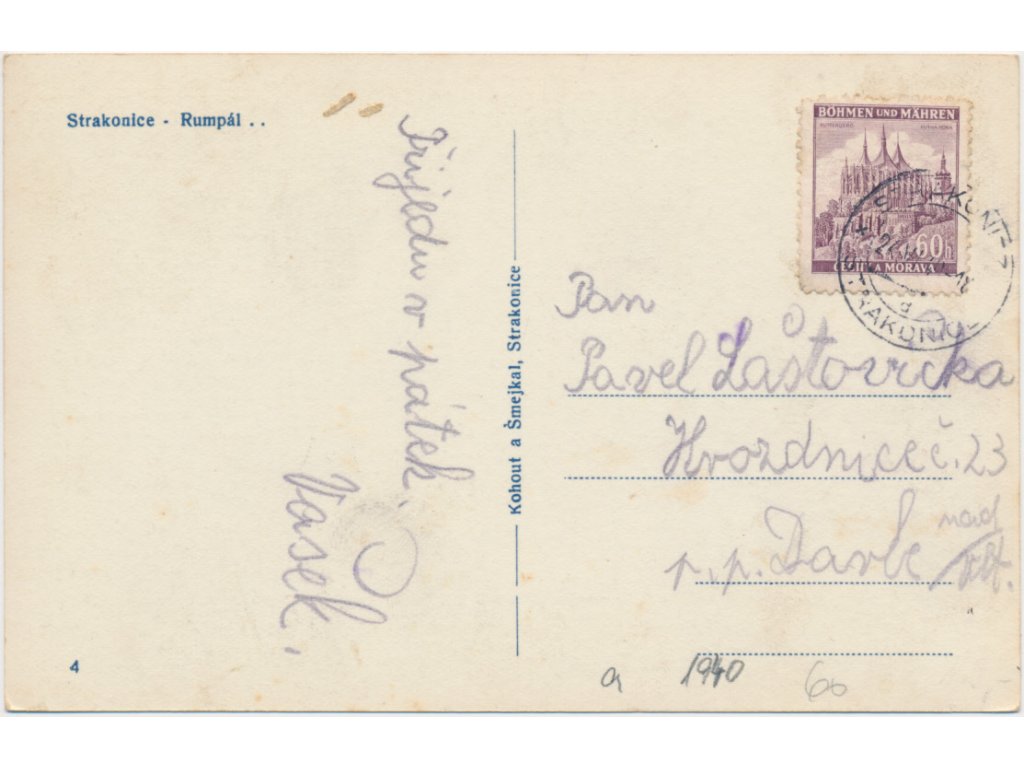 Strakonice - Rumpál . .
Přijedu v pátek.
Vašek.
4
Kohout a Šmejkal, Strakonice
BÖHMEN UND MÄHREN
KUTTENBERG KUTNÁ HORA
60h
ČECHY A MORAVA
STRAKONICE
STRAKONICE
Pan
Pavel Laštovička
Hvozdnice č. 23
p. p. Davle nad
Vlt.
a 1940 60